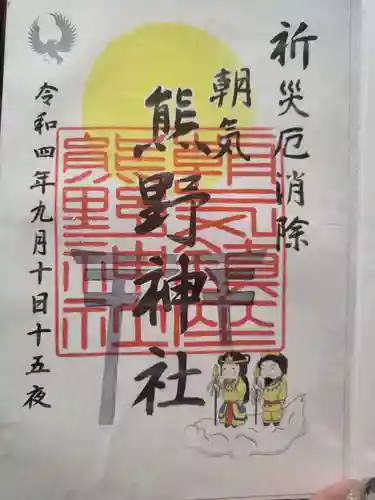 祈災厄消除
朝気
熊野神社
令和四年九月十日十五夜